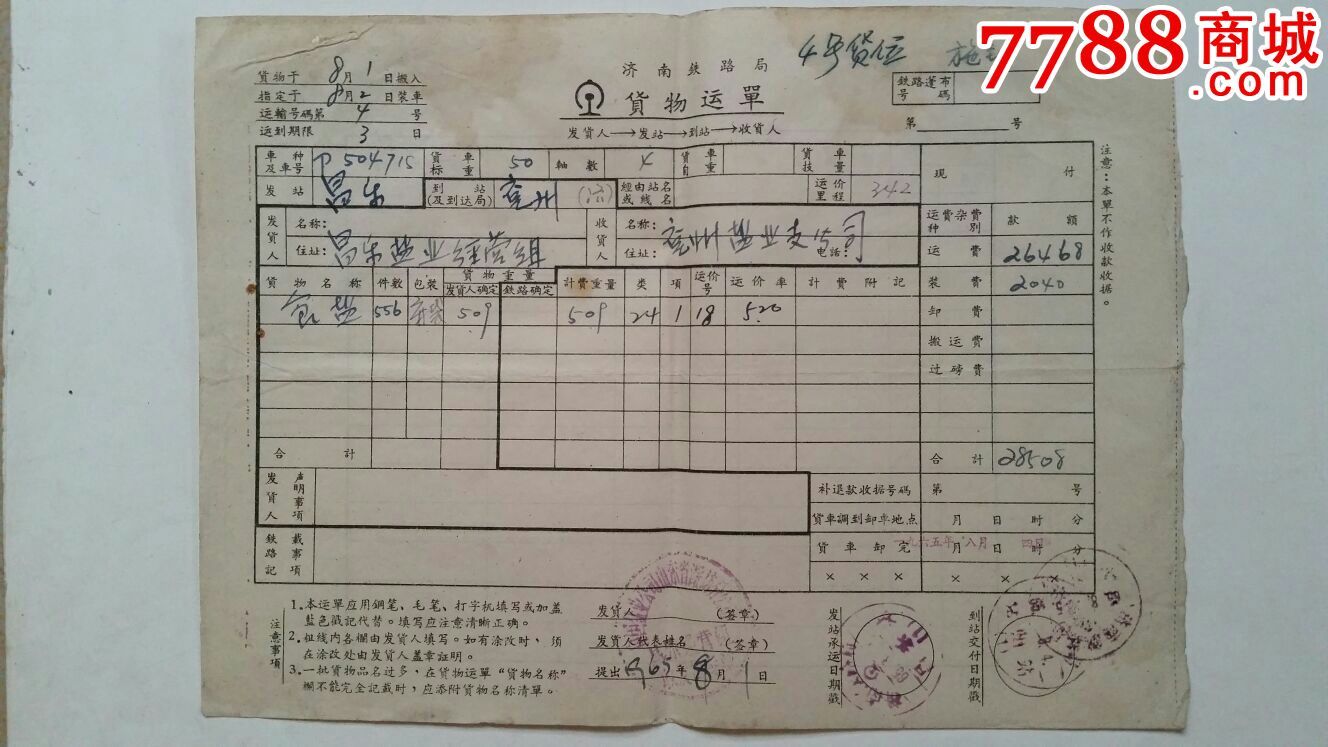 7788商城
.com
4号货位
济南铁路局
貨物运單
发貨人→发站→到站→收貨人
貨物于8月1日搬入
指定于8月2日装車
运輸号碼第4号
运到期限3日
鉄路篷布
号碼
第号
車种及車号 P504715 貨車标重 50 軸数 4 貨車自重 貨車技量 现付
发站 昌乐 到站(及到达局) 兖州 (济) 經由站名或线名 运价里程 342
发貨人 名称: 收貨人 名称: 运費杂費种別 款額
住址: 昌乐盐业经营组 住址: 兖州盐业支公司 电話: 运費 26468
貨物名称 件数 包装 貨物重量 計費重量 类項 运价号 运价率 計費附記 装費 2040
发貨人确定 鉄路确定
食盐 556 509 509 24 1 18 5.20 卸費
搬运費
过磅費
合計 合計 28508
发貨人声明事項 补退款收据号碼 第号
貨車調到卸車地点 月日时分
鉄路記載事項 貨車卸完 月日时分
一九六五年八月四日
× × × × × ×
注意:本單不作收款收据。
注意事項
1.本运單应用鋼笔、毛笔、打字机填写或加盖
藍色戳記代替。填写应注意清晰正确。
2.粗线内各欄由发貨人填写。如有涂改时,须
在涂改处由发貨人盖章証明。
3.一批貨物品名过多,在貨物运單“貨物名称”
欄不能完全記载时,应添附貨物名称清單。
发貨人(签章)
发貨人代表姓名(签章)
提出1965年8月1日
发站承运日期戳
到站交付日期戳